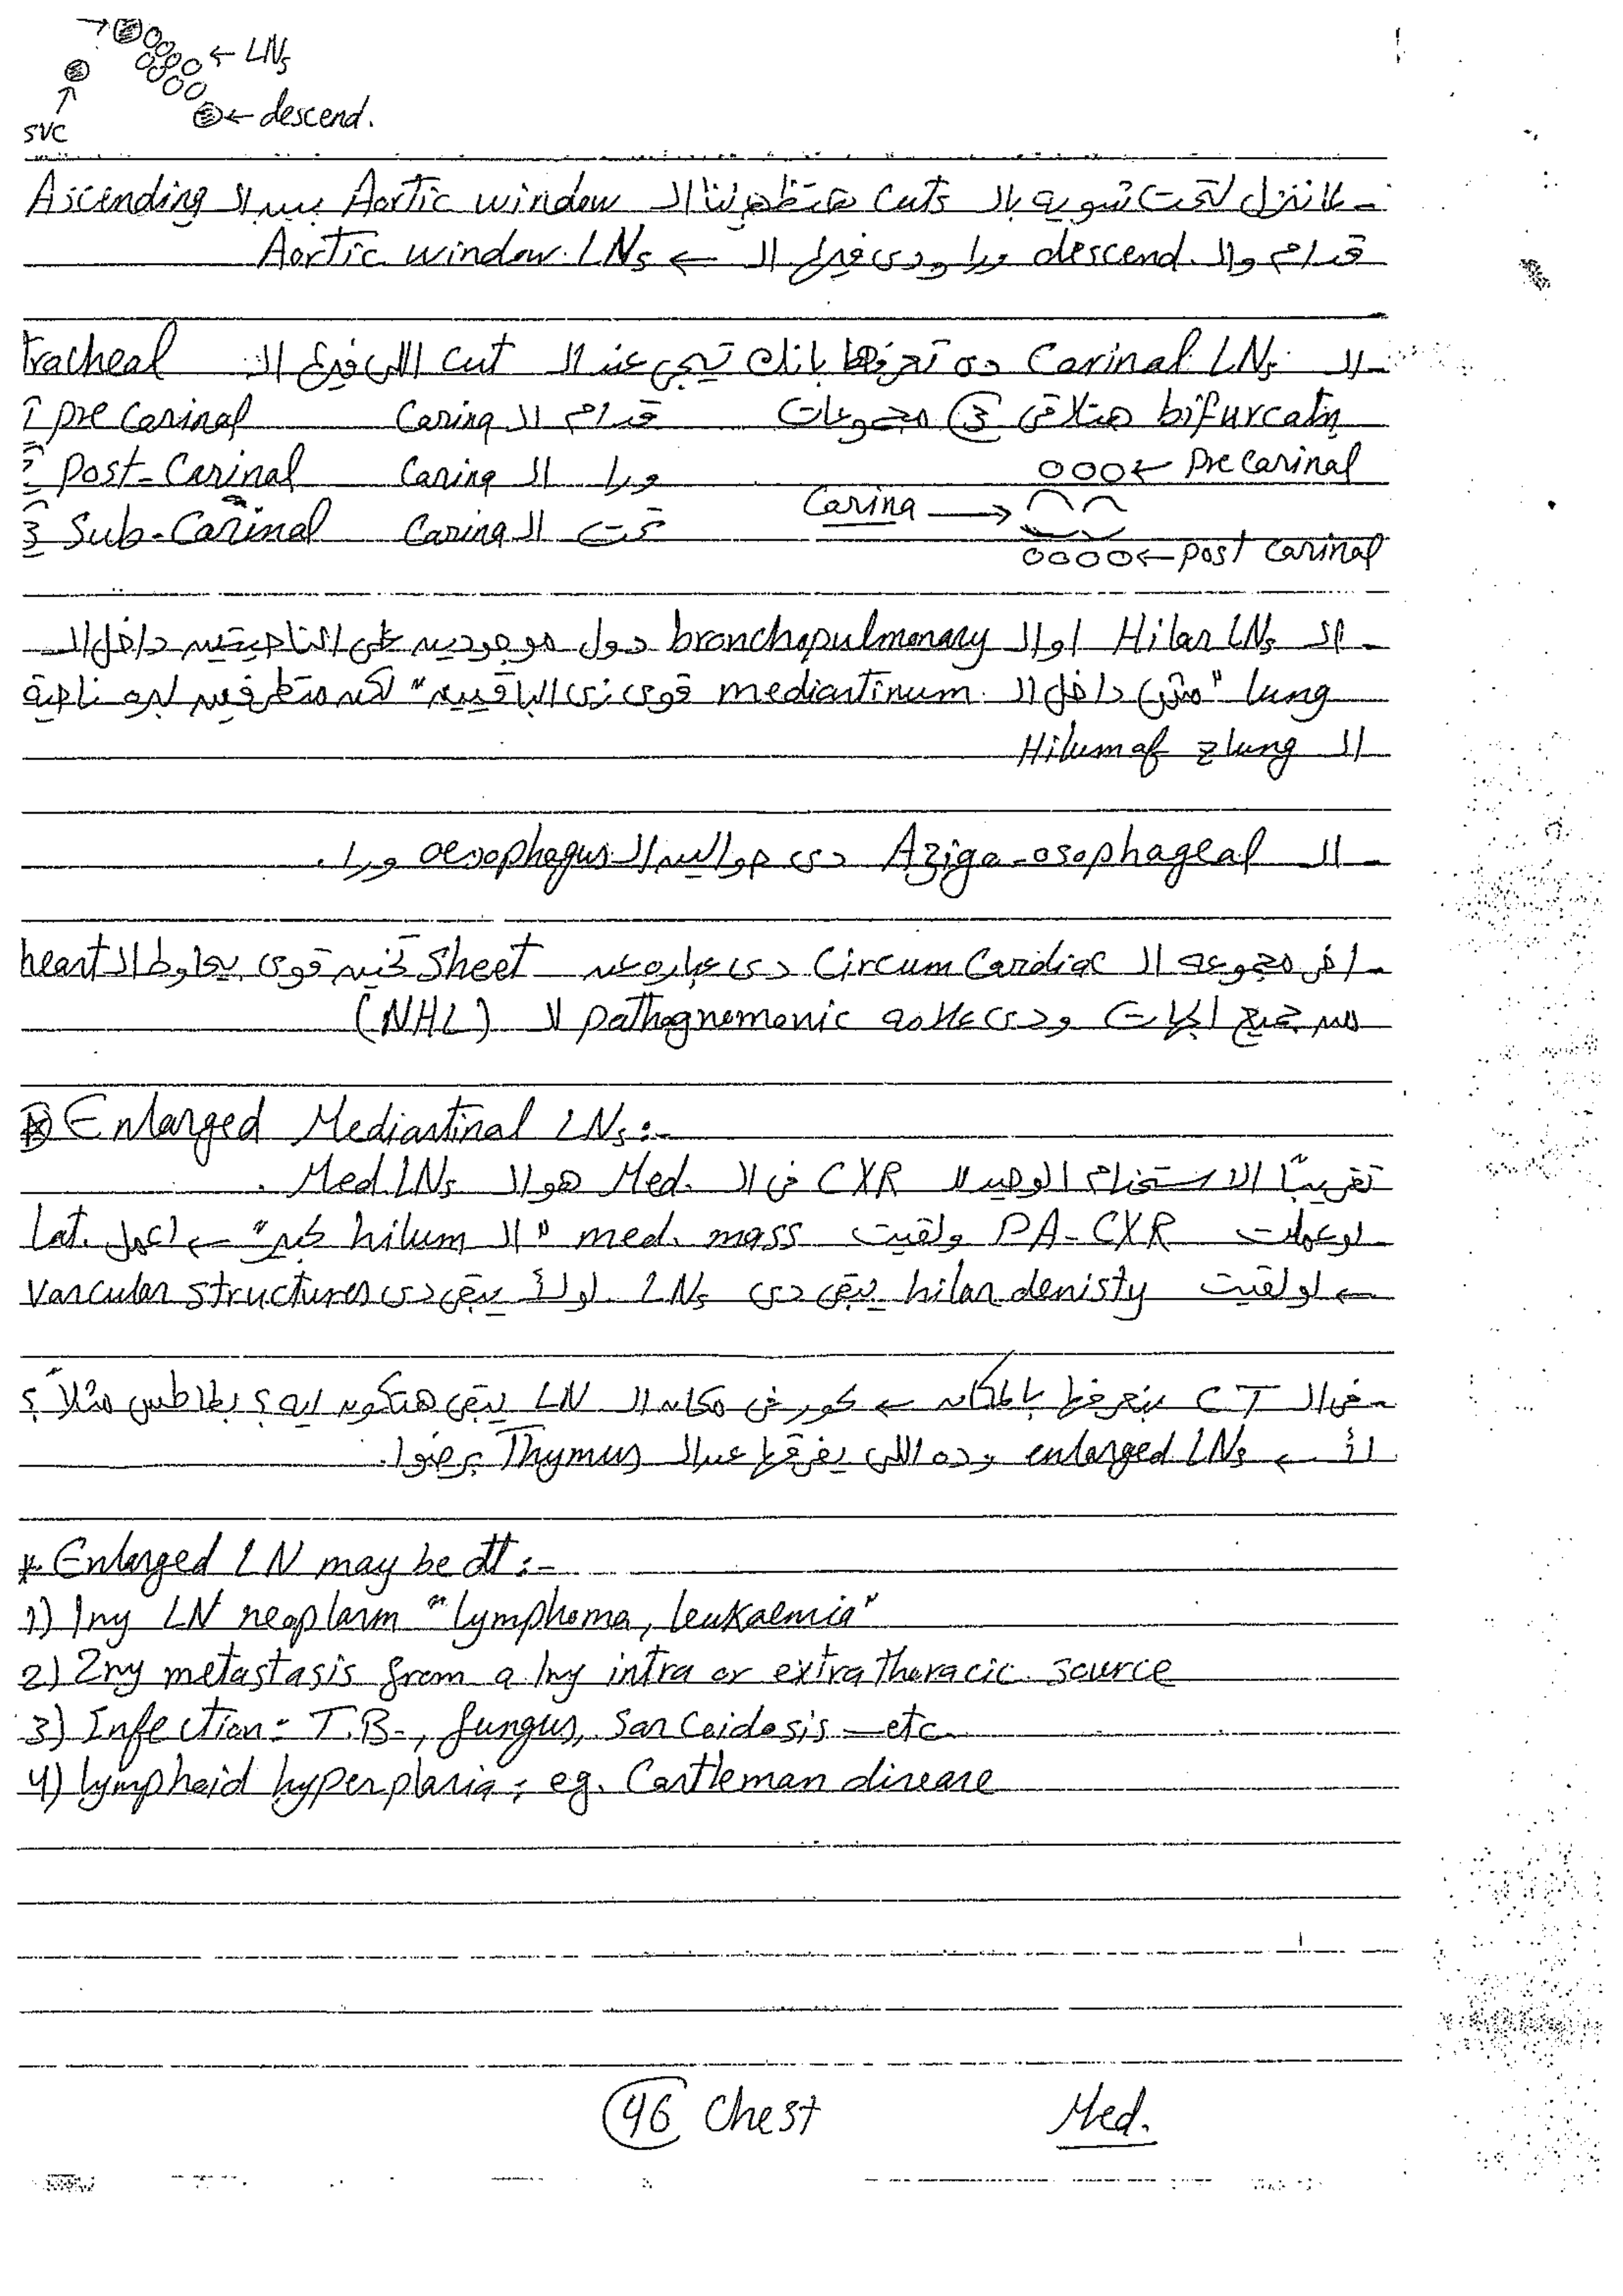 ← LNs
← descend.
SVC
- لما ننزل تحت شويه بالـ cuts هتظهرلنا الـ Aortic window بين الـ Ascending
قدام والـ descend. ورا ودى فيها الـ ← Aortic window LNs
- الـ Carinal LNs ده تعرفها بانك تيجى عند الـ cut اللى فيه الـ tracheal
bifurcatn هتلاقى ③ مجموعات
1 pre carinal قدام الـ Carina
2 post-Carinal ورا الـ Carina
3 Sub-Carinal تحت الـ Carina
ooo ← Pre carinal
Carina →
oooo ← post carinal
- الـ Hilar LNs او الـ bronchopulmonary دول موجودين على الناحيتين داخل الـ
lung "مش داخل الـ mediastinum قوى زى الباقيين" لكن متطرفين لبره ناحية
الـ Hilum of z lung
- الـ Azigo-osophageal دى حوالين الـ oesophagus ورا.
- اخر مجموعه الـ Circum Cardiac دى عباره عن Sheet تخين قوى يحاوط الـ heart
من جميع الجهات ودى علامه pathognemonic لا (NHL)
Enlarged Mediastinal LNs:-
تقريباً الاستخدام الوحيد لا CXR فى الـ Med. هو الـ Med.LNs .
- لو عملت PA-CXR ولقيت med. mass "الـ hilum كبير" ← اعمل Lat.
← لو لقيت hilar denisty يبقى دى LNs لو لأ يبقى دى Vascular structures
- فى الـ CT بنعرفها بالمكان ← كور فى مكان الـ LN يبقى هتكون ايه؟ بطاطس مثلاً؟
لأ ← enlarged LNs وده اللى يفرقها عن الـ Thymus برضوا.
* Enlarged LN may be dt:-
1) 1ry LN neoplasm "lymphoma, leukaemia"
2) 2ry metastasis from a 1ry intra or extra thoracic source
3) Infection: T.B., fungus, sarcoidosis — etc.
4) lymphoid hyperplasia; eg. Castleman disease
46 Chest Med.